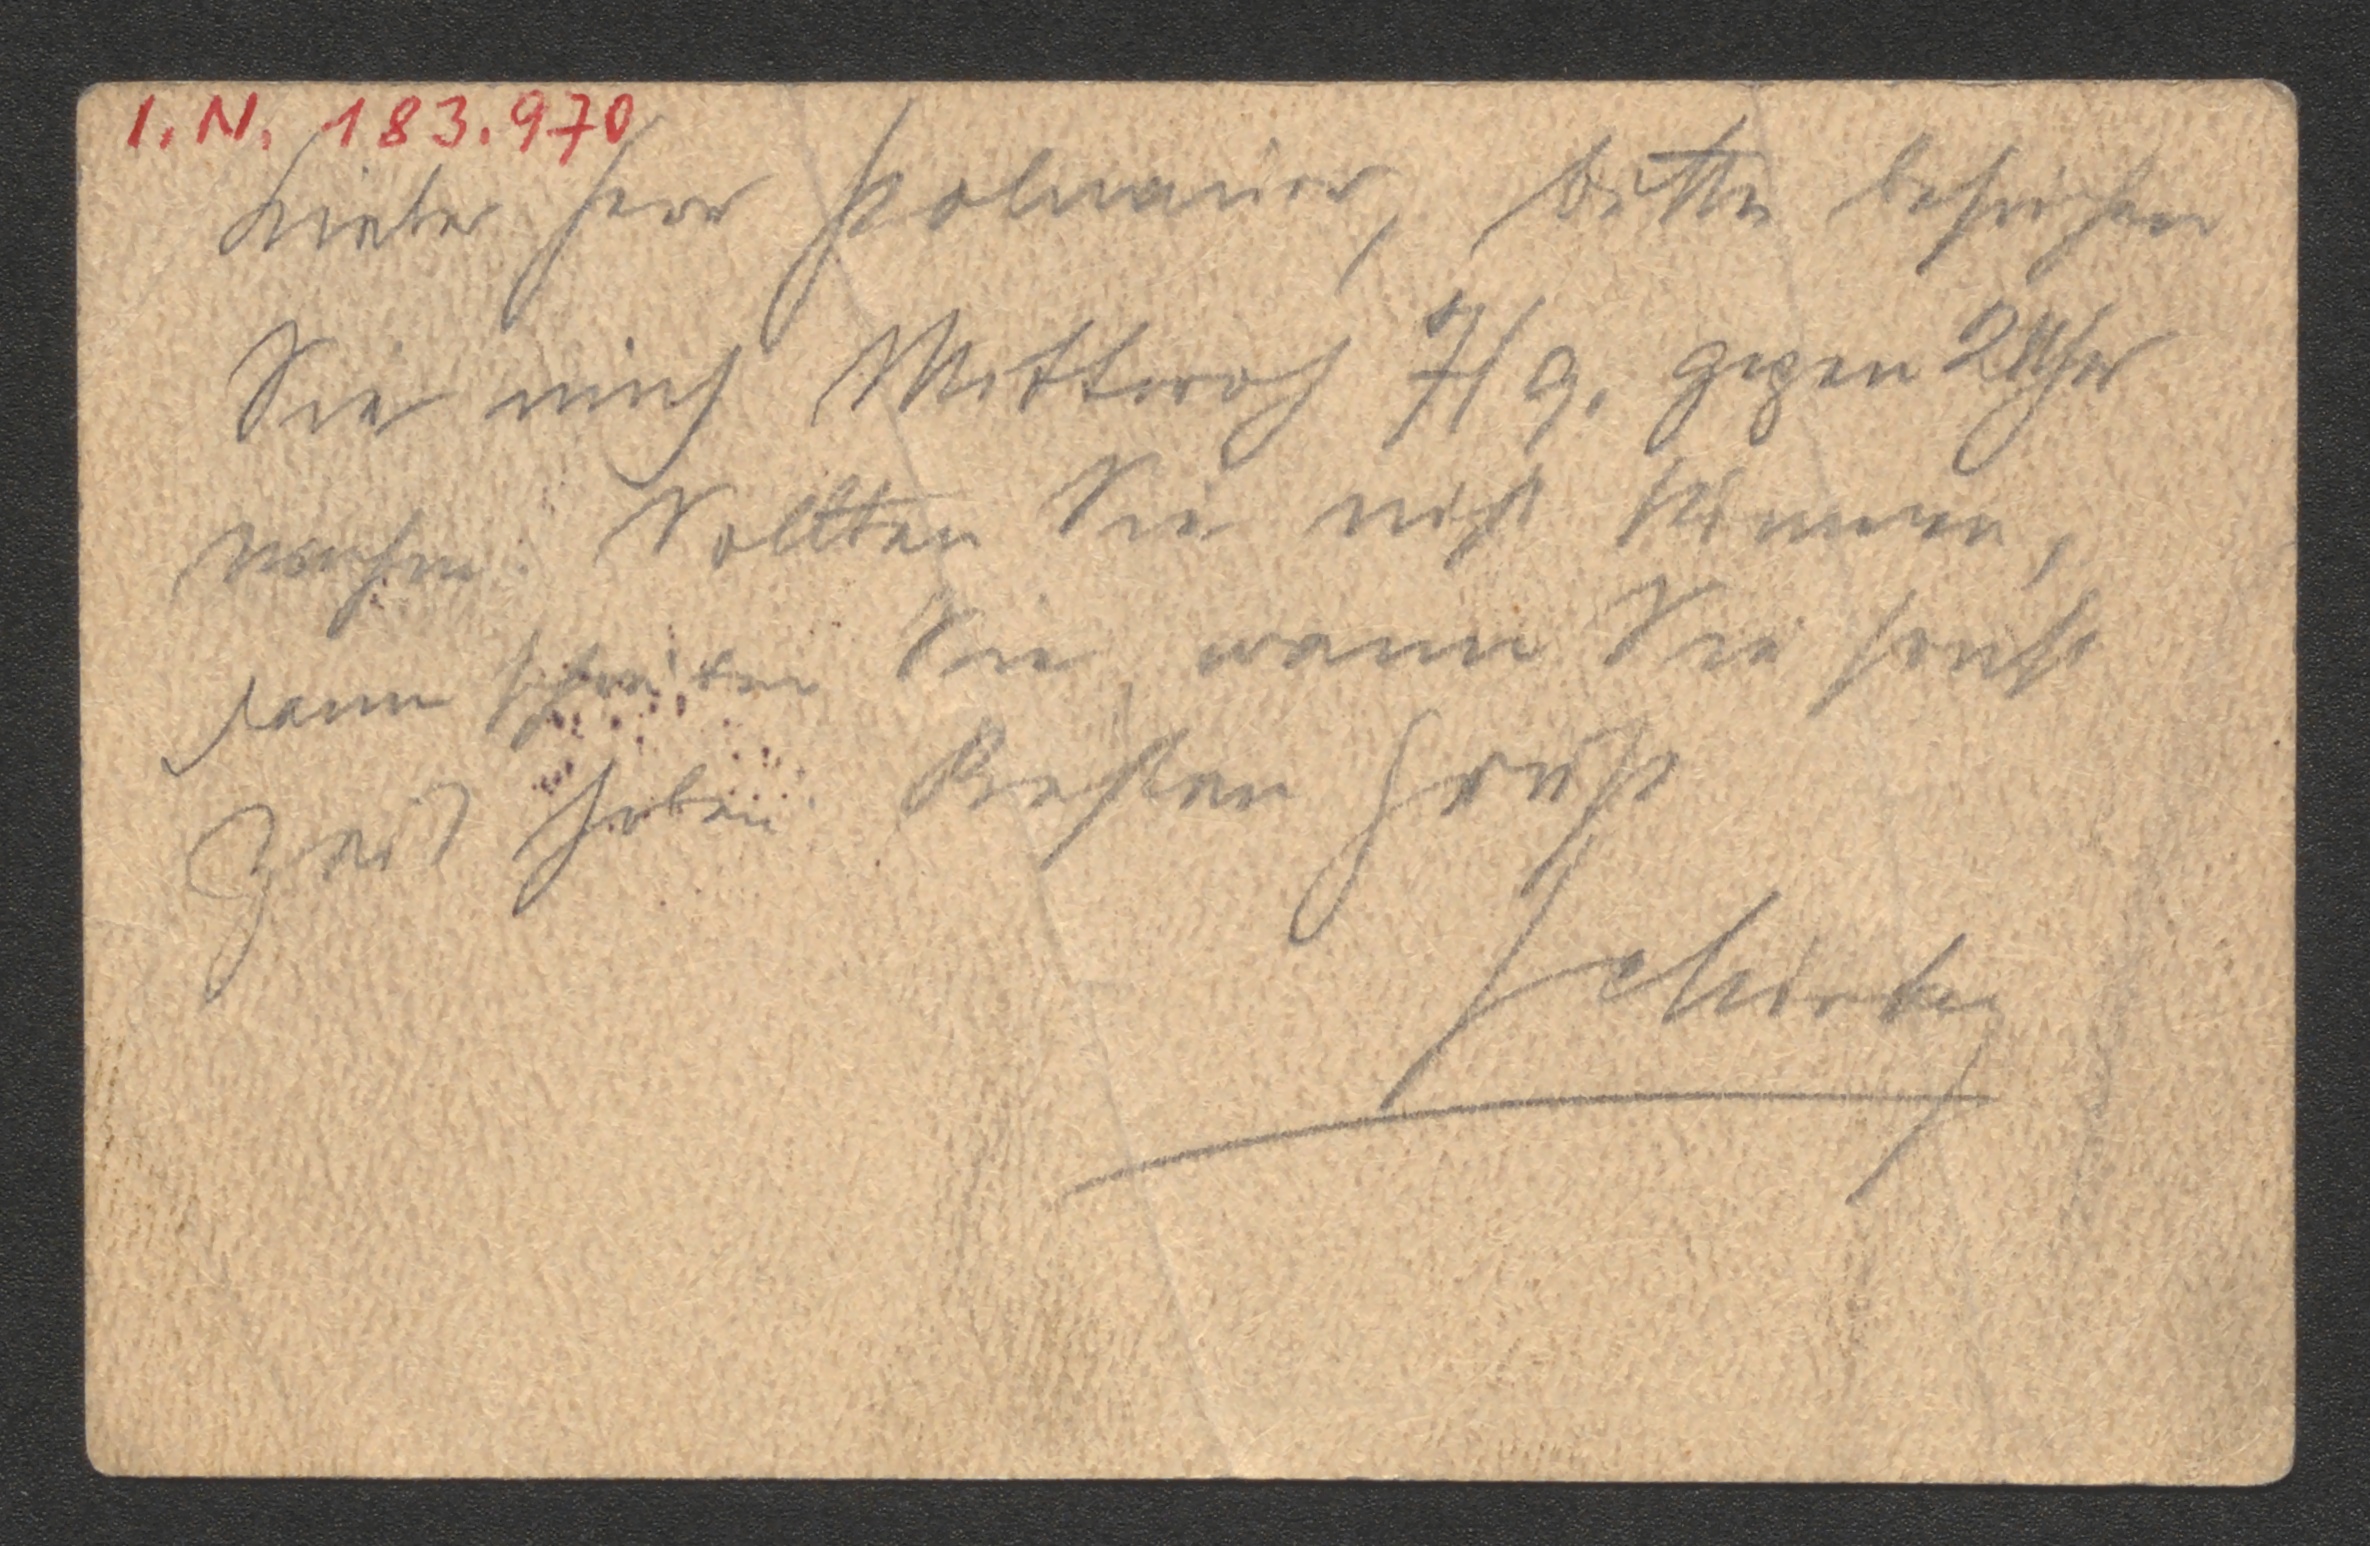 I.N. 183.970
Lieber Herr Polnauer, bitte besuchen
Sie mich Mittwoch 7/9. gegen 2 Uhr
nachm. Sollten Sie nicht können,
dann schreiben Sie, wann Sie sonst
Zeit haben. Besten Gruß